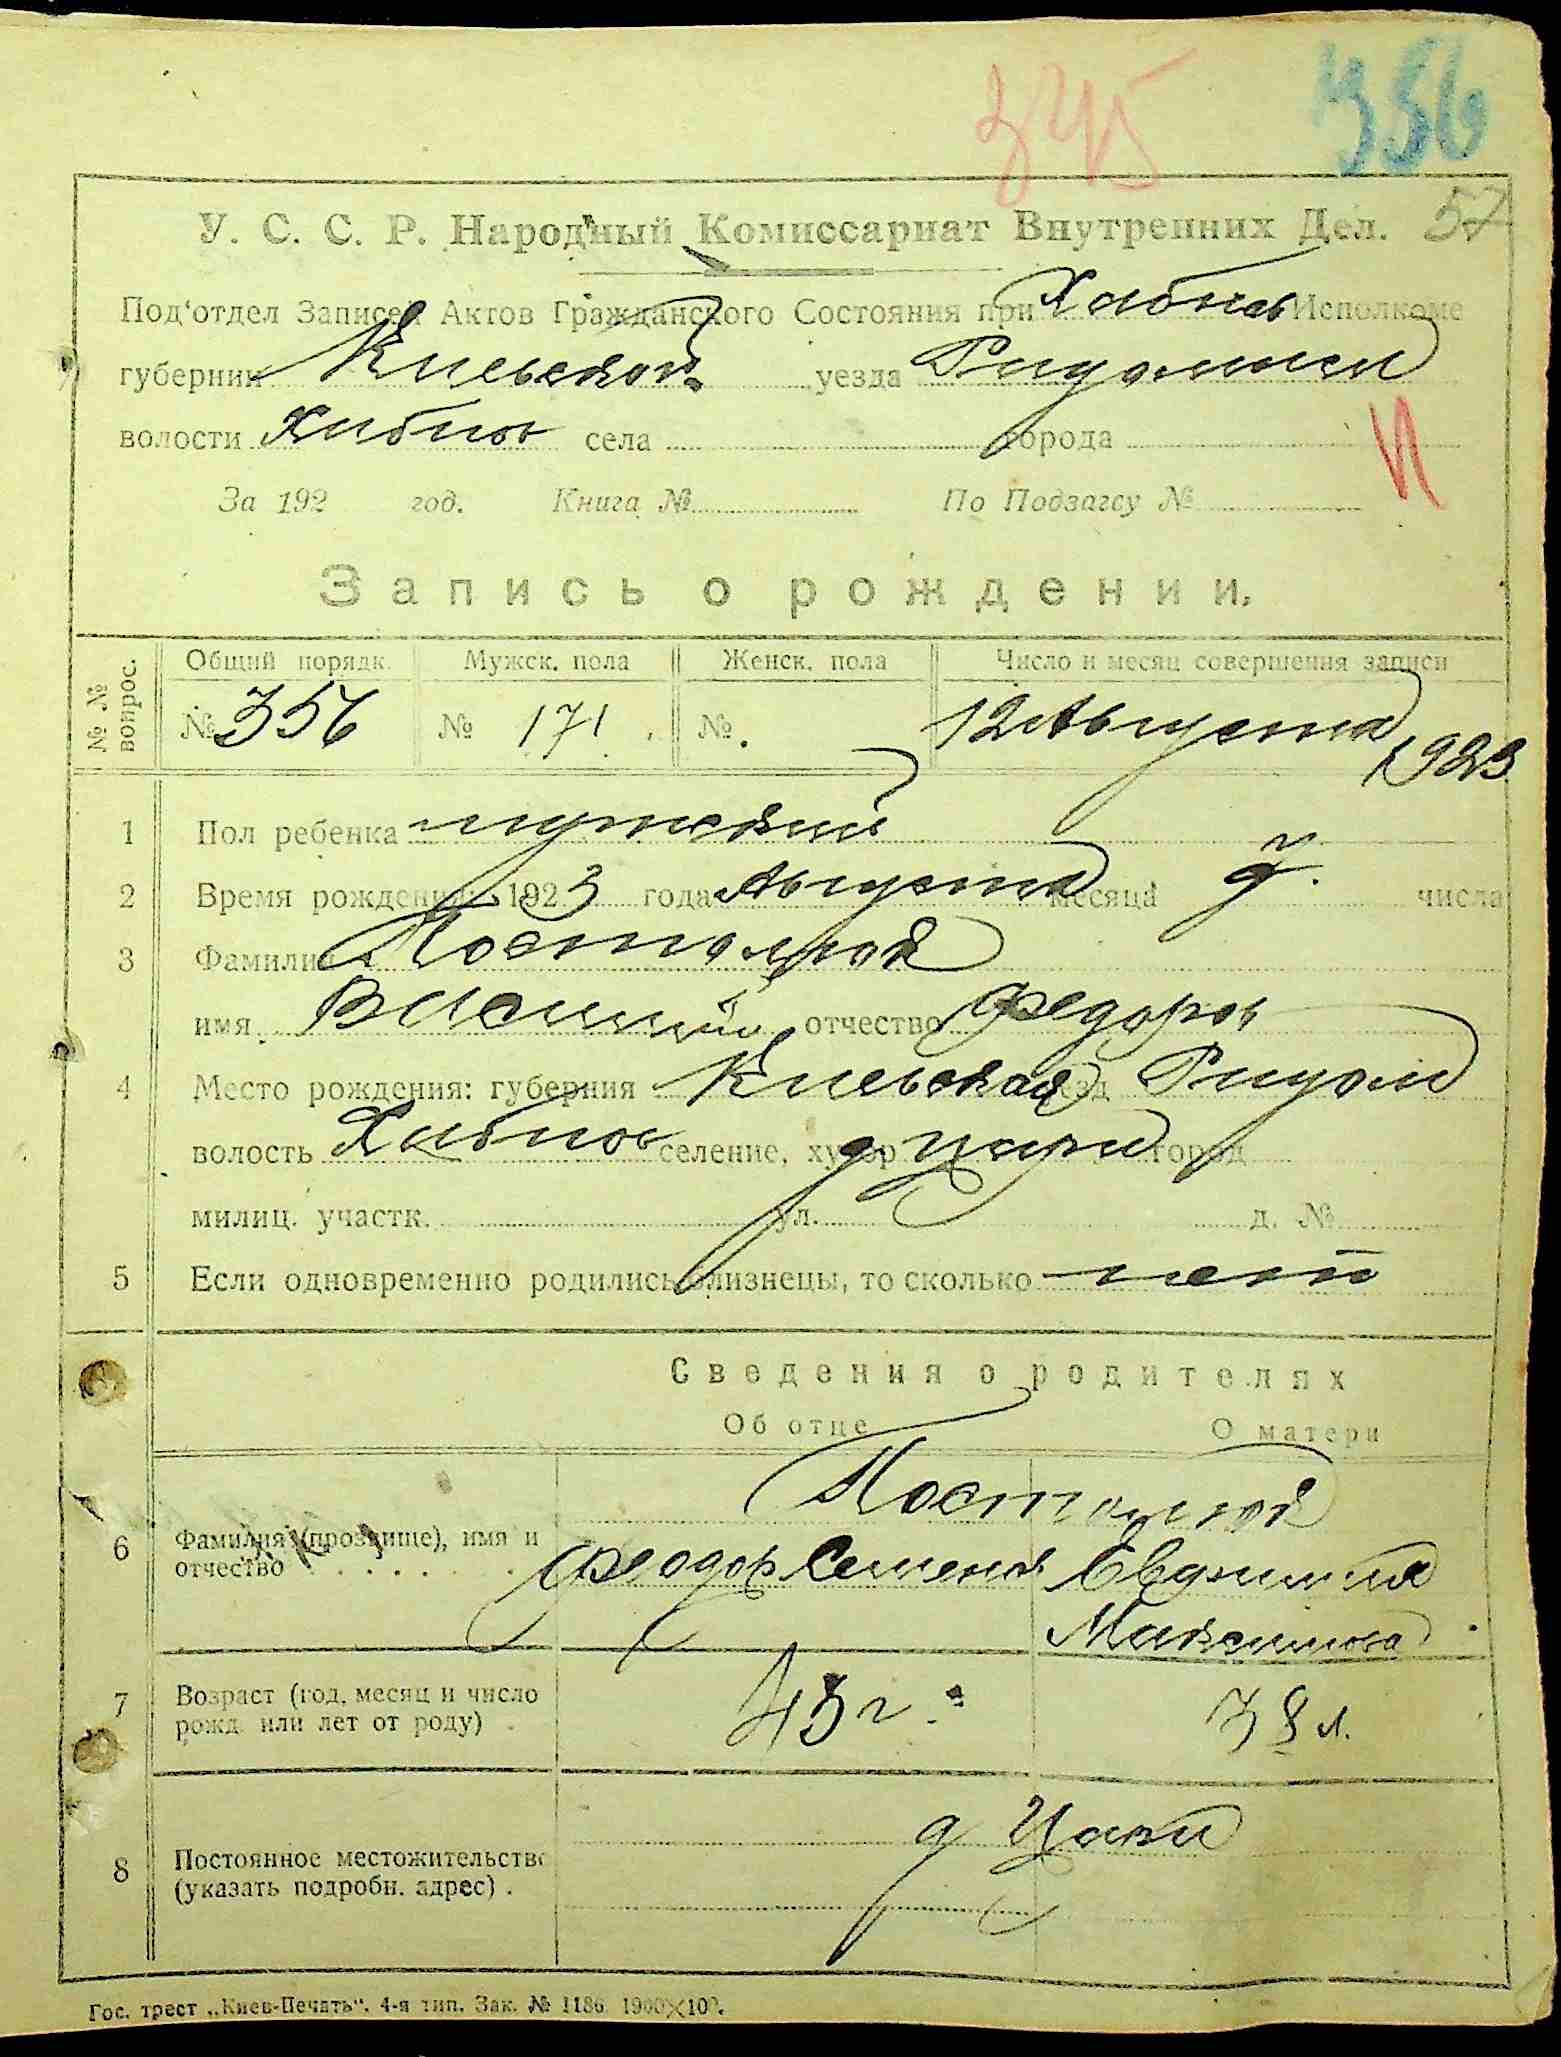 345 356
У. С. С. Р. Народный Комиссариат Внутренних Дел. 57
Под'отдел Записей Актов Гражданского Состояния при Хабнов Исполкоме
губернии Киевской уезда Радомысл
волости Хабнов села города
За 192 год. Книга № По Подзагсу №
Запись о рождении.
№ № вопрос. Общий порядк. Мужск. пола Женск. пола Число и месяц совершения записи
№ 356 № 171 №. 12 Августа
1923
1 Пол ребенка мужский
2 Время рождения: 1923 года Августа месяца 7. числа
3 Фамилия
имя Василий отчество Федоров
4 Место рождения: губерния Киевская уезд Радом
волость Хабнов селение, хутор д город
милиц. участк. ул. д. №
5 Если одновременно родились близнецы, то сколько нет
Сведения о родителях
Об отце О матери
6 Фамилия (прозвище), имя и
отчество Феодор Семенов Евдокия
Максимова
7 Возраст (год, месяц и число 43 г. 38 л.
рожд. или лет от роду)
8 Постоянное местожительство д
(указать подробн. адрес) .
Гос. трест „Киев-Печать". 4-я тип. Зак. № 1186 1900×100.